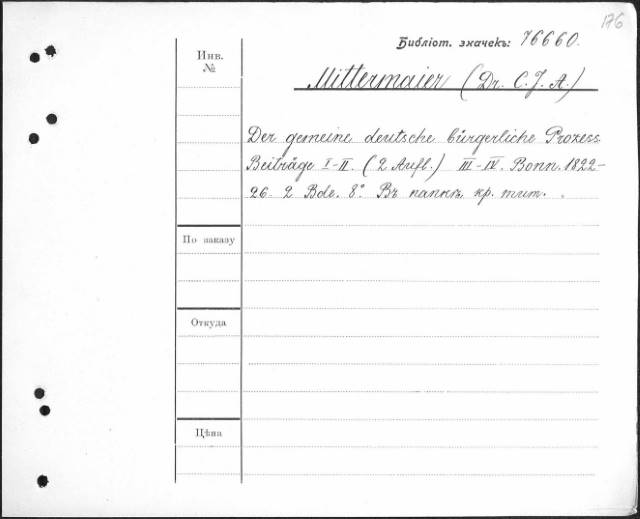 176
Библіот. значекъ: 76660.
Инв.
№
Mittermaier (Dr. C. J. A.)
Der gemeine deutsche bürgerliche Prozess.
Beiträge I-II. (2 Aufl.) III-IV. Bonn. 1822-
26. 2 Bde. 8°. Въ папкѣ, кр. тит.
По заказу
Откуда
Цѣна